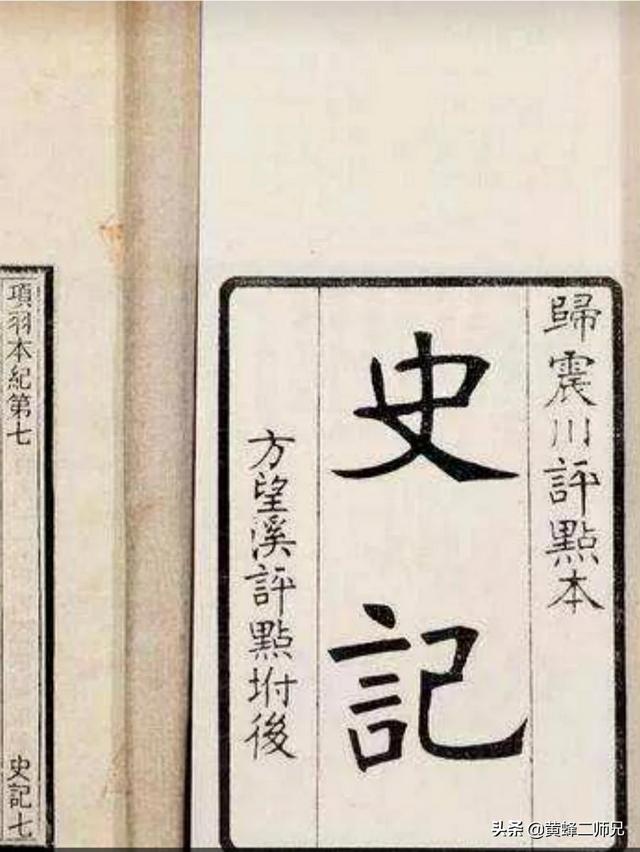 歸震川評點本
史記
方望溪評點坿後
項羽本紀第七
史記七
头条 @黄蜂二师兄